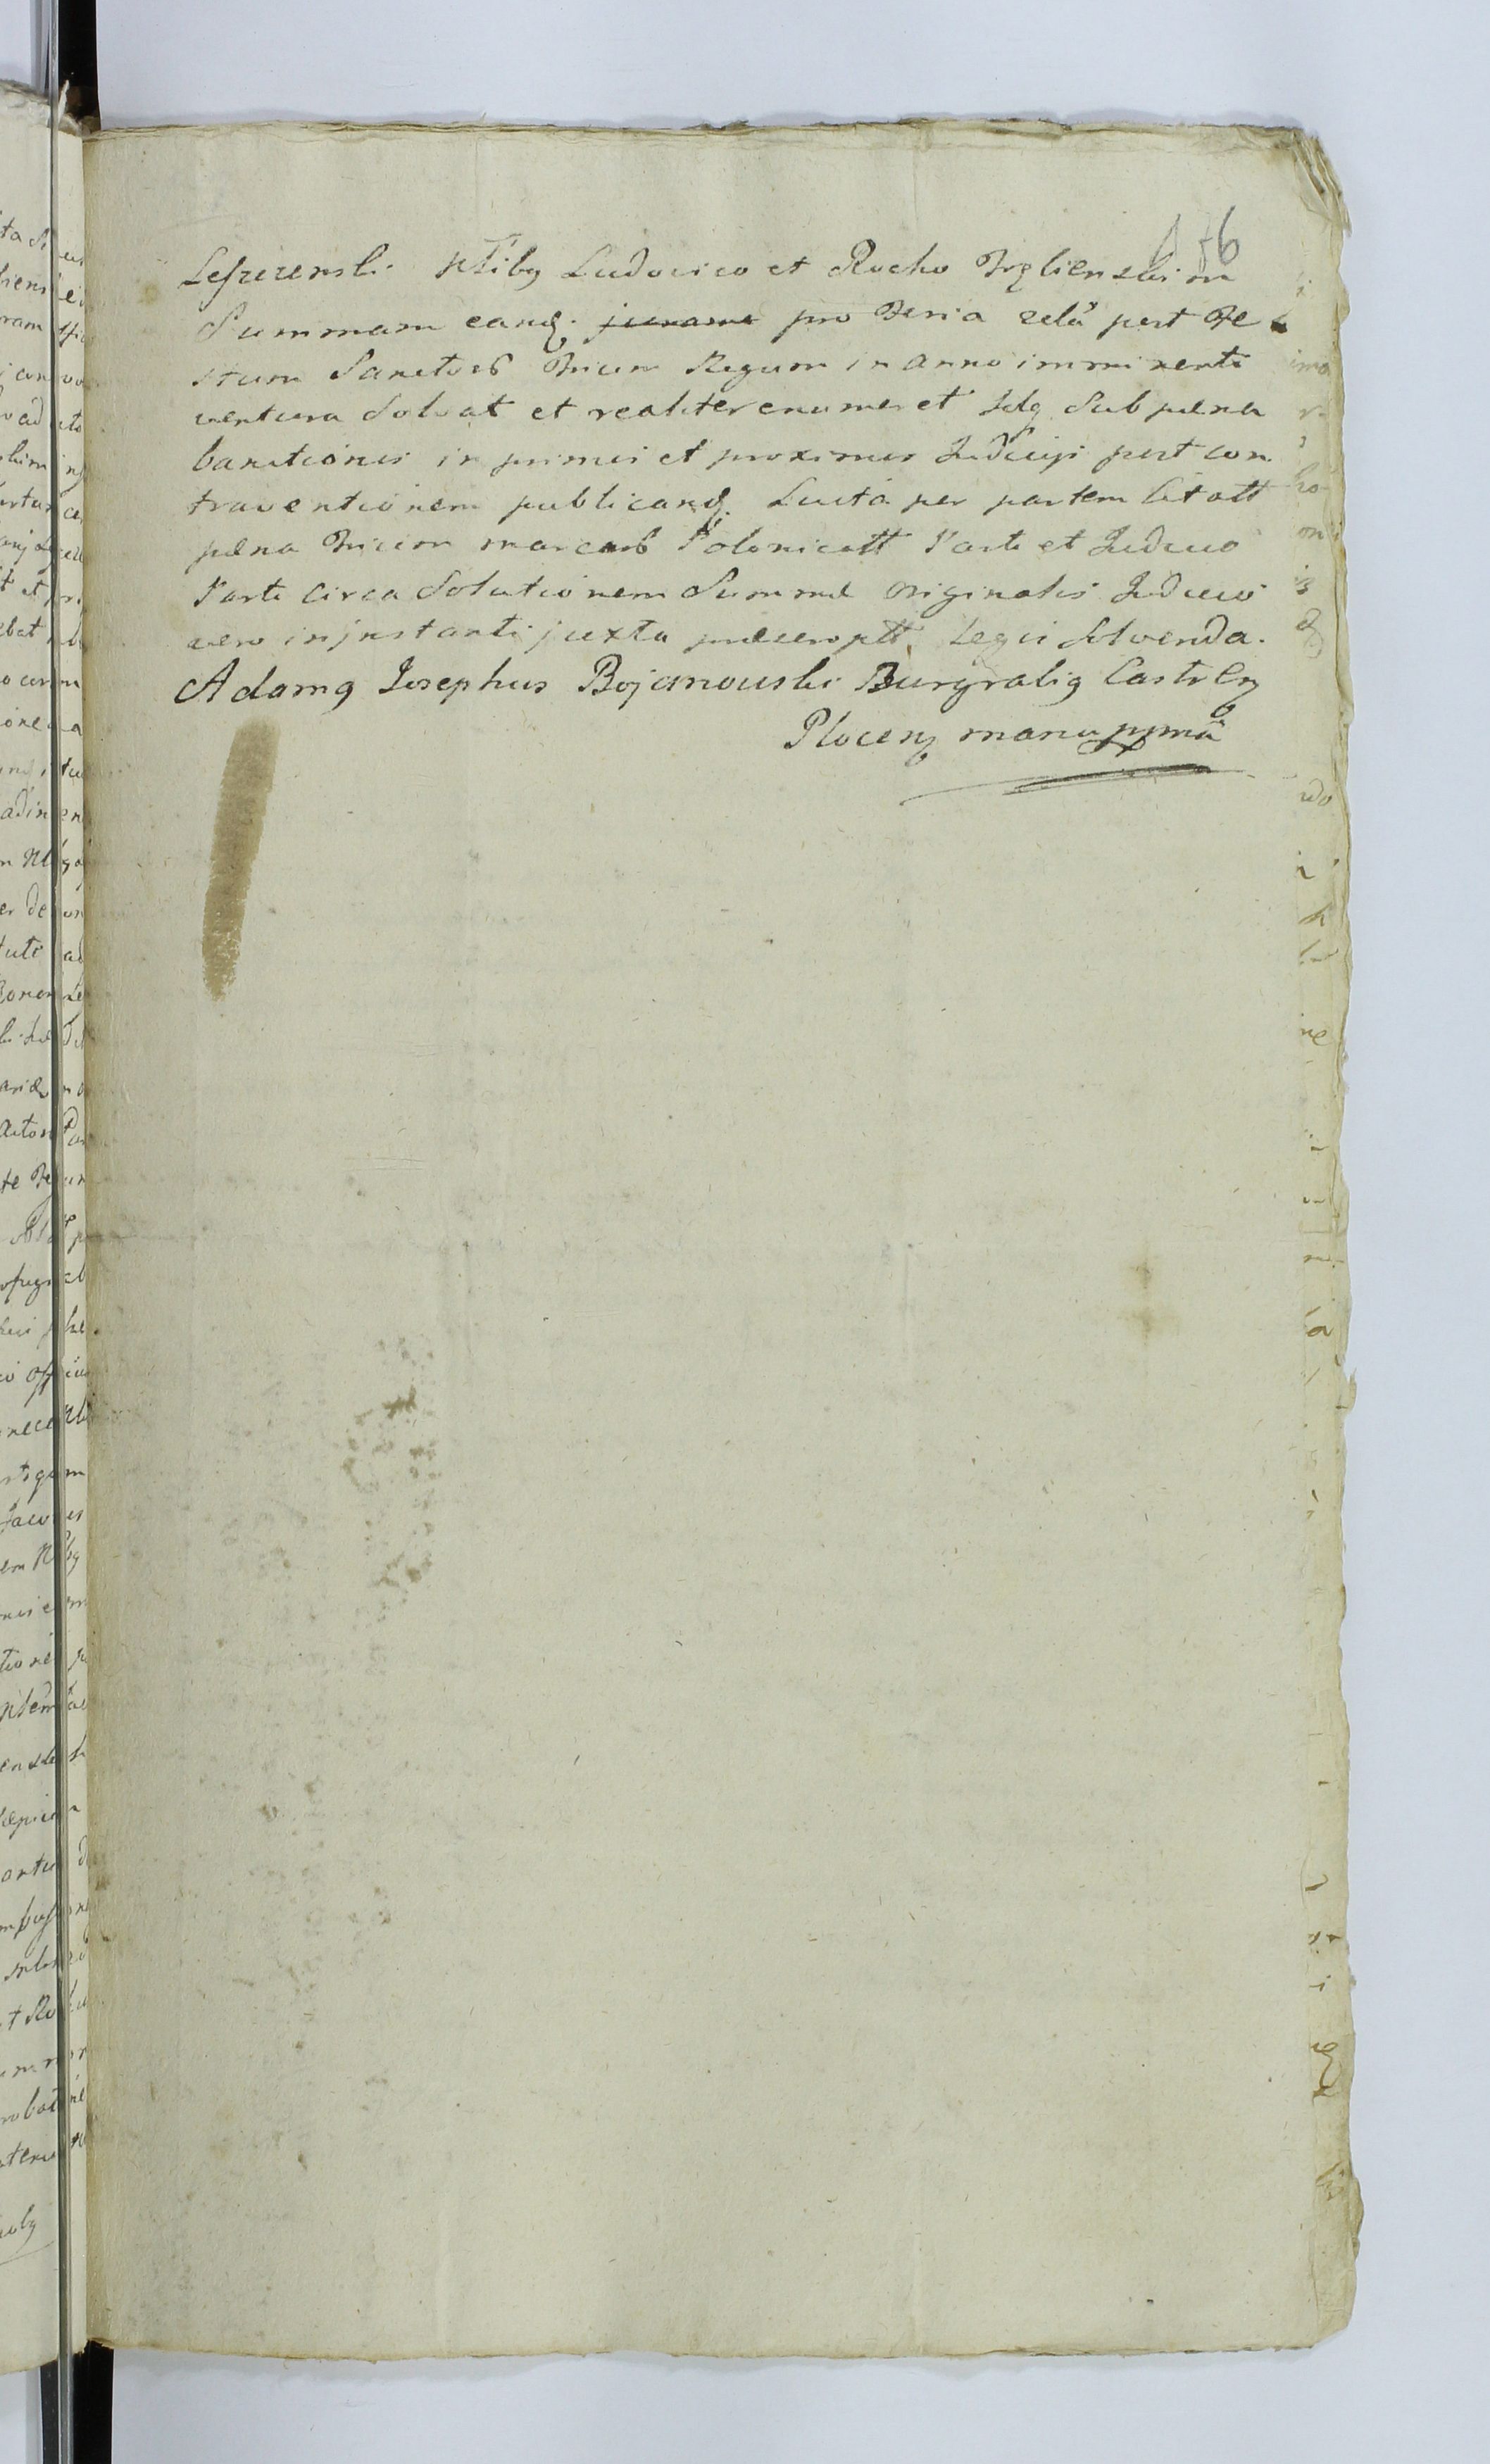 176
Leszczenski Nobiliby Ludovico et Rocho Tręblienski in
Summam eandq. juram pro Feria 2da post Fe
stum Sanctorb Trium Regum in anno imminenti
ventura Solvat et realiter enumeret Idq Sub pæna
banitionis in primis et proximis Judicijs post con
traventionem publicandq. Luita per partem Citatt
pæna Trium marcarb Polonicatt Parti et Judicio
Parti circa Solutionem Summæ Originalis Judicio
vero in instanti juxta præscriptt Legis Solvenda.
Adamq Josephus Bojanowski Burgrabiq Castr Eq
Plocenq manu ppria